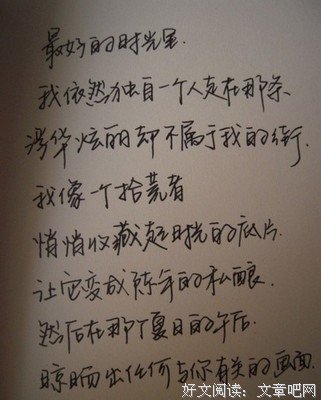 最好的时光里.
我依然独自一个人走在那条
浮华炫丽却不属于我的街.
我像一个拾荒者
悄悄收藏起时光的底片.
让它变成陈年的私酿.
然后在那个夏日的午后.
晾晒出任何与你有关的画面
好文阅读：文章吧网